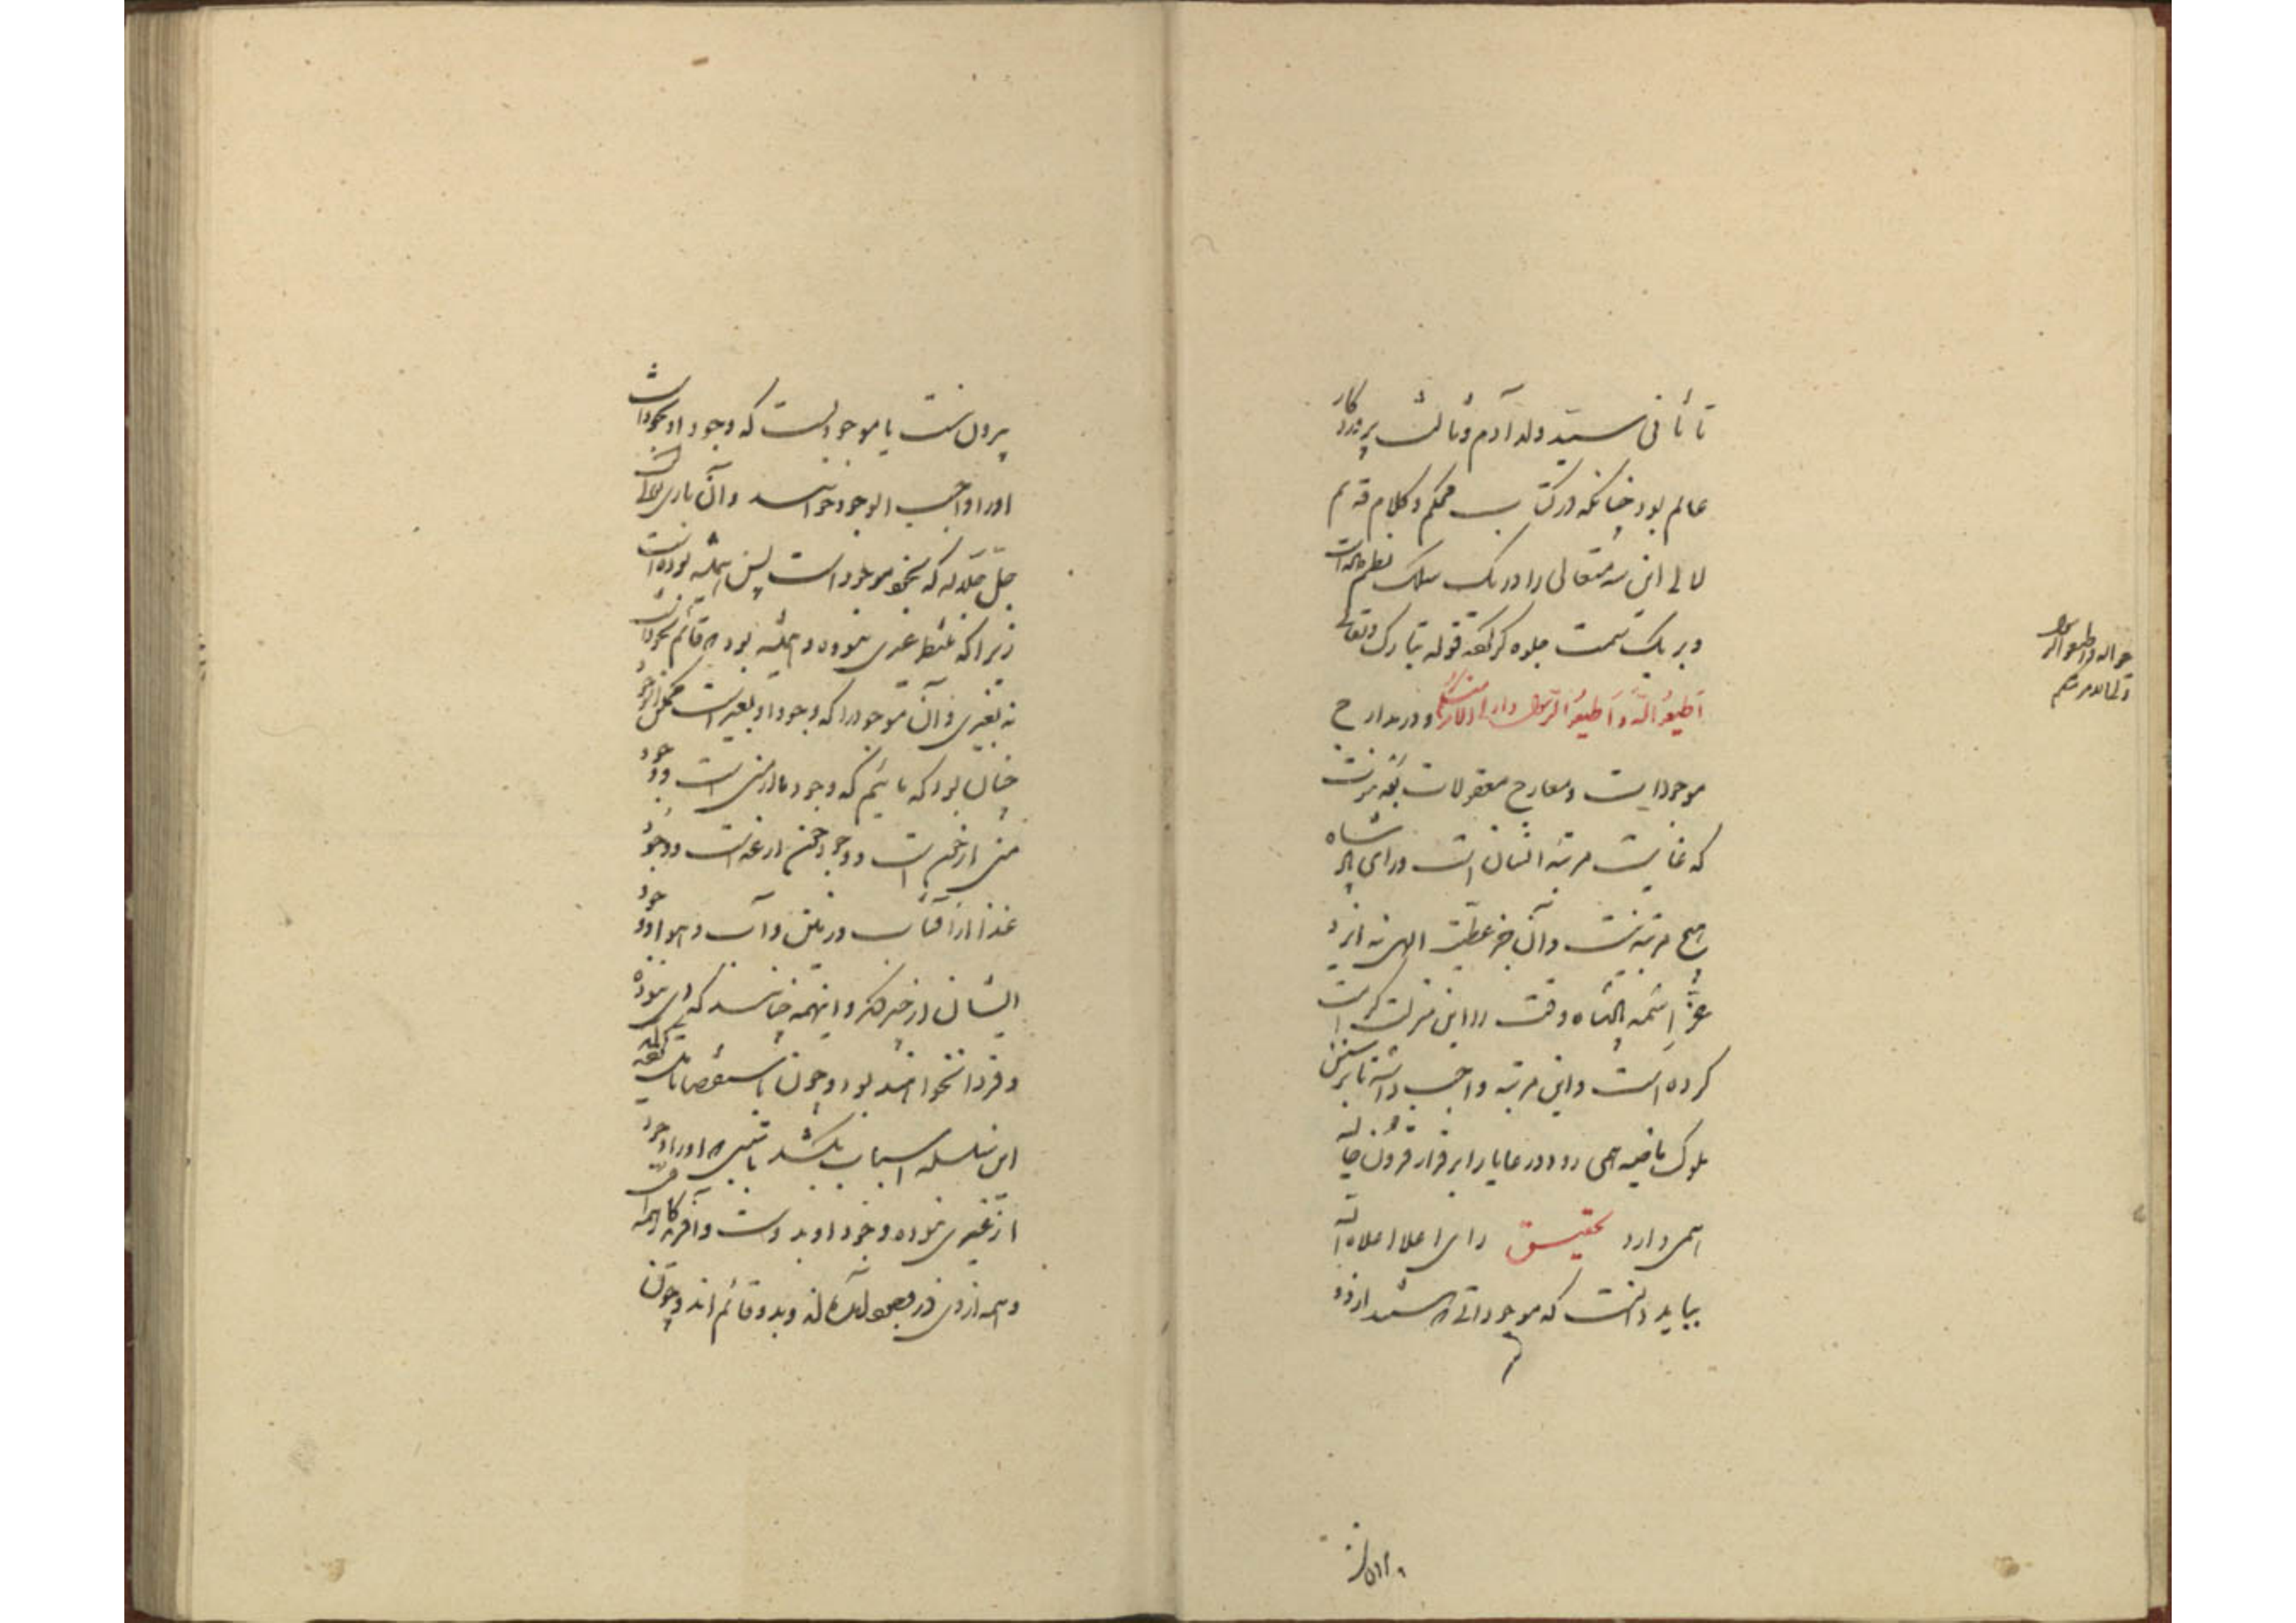 تا ثانی سید ولد آدم و ثالث پروردگار
عالم بود چنانکه در کتاب محکم و کلام قدیم
لآلی این سه متعالی را در یک سلک نظم داده است
و بر یک سمت جلوه کر کفته قوله تبارک و تعالی
اَطیعُوا الله وَ اَطیعُوا الرّسول و اولی الامر منکم و در مدارج
موجودات و معارج معقولات بعد نبوت
که غایت مرتبهٔ انسان است ورای پادشاه
هیچ مرتبه نیست و آن جز عطیت الهی نه ایزد
عزّ اسمه پادشاه وقت را این منزلت کرامت
کرده است و این مرتبه واجب داشته تا بر سنن
ملوک ماضیه همی رود و رعایا را بر قرار قرون خالیه
همی دارد تحقیق رای اعلا اعلاه الله
بباید دانست که موجوداتی که هستند از دو
بیرون نیست
حو الله و اطیعوا الرسول
بیرون نیست یا موجودیست که وجود او بخود است
او را واجب الوجود خوانند و آن باری تعالی است
جل جلاله که بخود موجود است پس همیشه بوده است
زیرا که منتظر غیری نبوده و همیشه بود که قائم بخود است
نه بغیری و آن موجود را که وجود او بغیر است ممکن الوجود
چنان بود که مائیم که وجود ما از منی است و وجود
منی از خون است و وجود خون از غذاست و وجود
غذا از آفتاب و زمین و آب و هوا و وجود
ایشان از چیز دیگر و اینهمه چنانند که دی نبوده
و فردا نخواهند بود و چون باستقصا تأمل کرده
این سلسله اسباب بکشد با سببی که او را وجود
از غیری نبوده وجود او بدوست و آفریدگار همه اوست
و همه از وی در وجود آمده اند و بدو قائم اند و چون